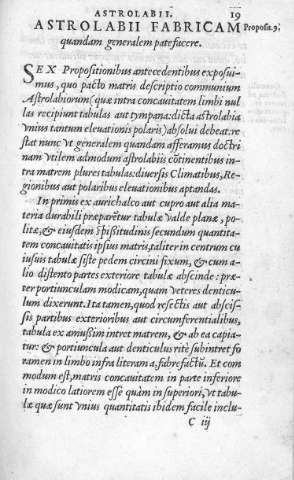 ASTROLABII. 19
ASTROLABII FABRICAM Propositi.9.
quandam generalem patefacere.
SEX Propositionibus antecedentibus exposui-
mus, quo pacto matris descriptio communium
Astrolabiorum (quæ intra concauitatem limbi nul
las recipiunt tabulas aut tympana: dicta astrolabia
vnius tantum eleuationis polaris) absolui debeat: re
stat nunc vt generalem quandam afferamus doctri
nam vtilem admodum astrolabiis cõtinentibus in-
tra matrem plures tabulas: diuersis Climatibus, Re-
gionibus aut polaribus eleuationibus aptandas.
In primis ex aurichalco aut cupro aut alia ma-
teria durabili præparẽtur tabulæ valde planæ, po-
litæ, & eiusdem spissitudinis secundum quantita-
tem concauitatis ipsius matris, taliter in centrum cu
iusuis tabulæ siste pedem circini fixum, & cum a-
lio distento partes exteriore tabulæ abscinde: præ-
ter portiunculam modicam, quam veteres denticu-
lum dixerunt. Ita tamen, quod resectis aut abscis-
sis partibus exterioribus aut circumferentialibus,
tabula ex amussim intret matrem, & ab ea capia-
tur: & portiuncula aut denticulus ritè subintret fo
ramen in limbo infra literam a, fabrefactũ. Et com
modum est, matris concauitatem in parte inferiore
in modico latiorem esse quàm in superiori, vt tabu-
læ quæ sunt vnius quantitatis ibidem facile inclu-
C iij